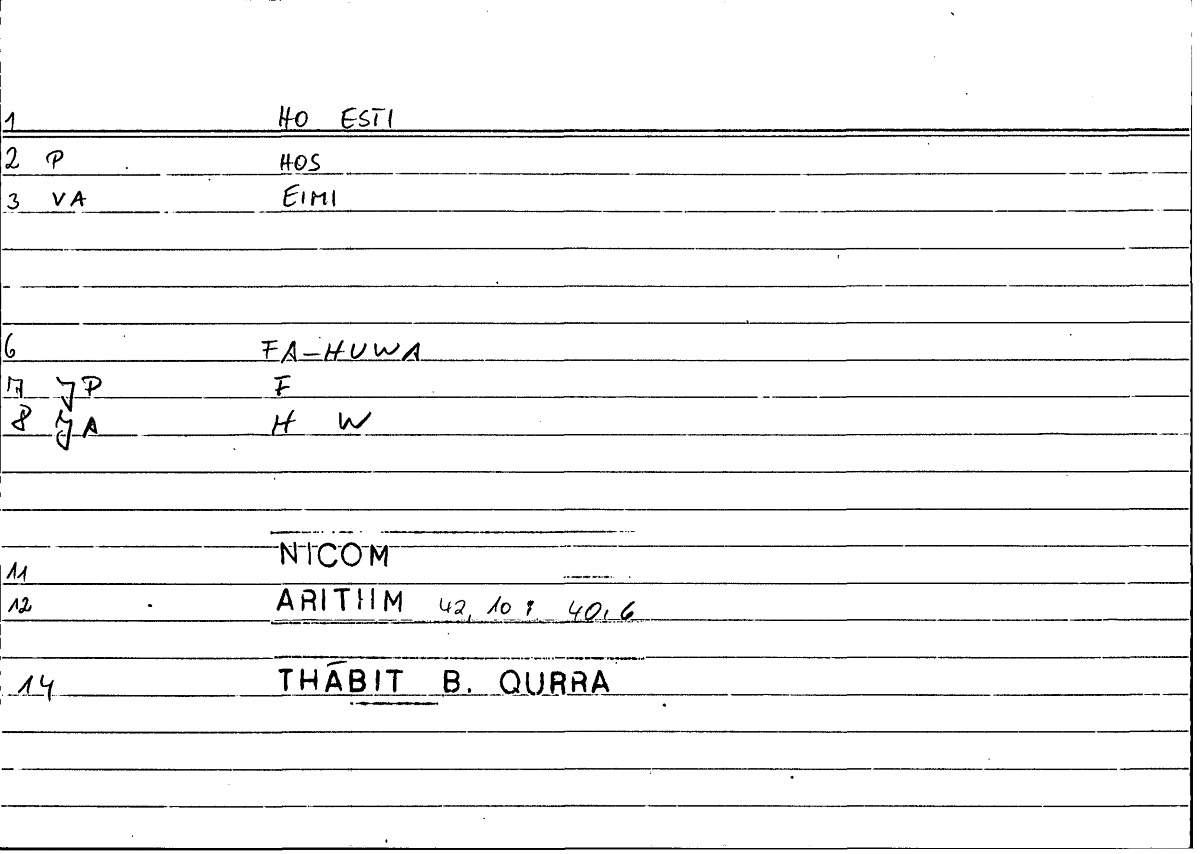 1 HO ESTI
2 P HOS
3 VA EIMI
6 FA-HUWA
7 JP F
8 JA H W
11 NICOM
12 ARITHM 42, 10 ; 40,6
14 THĀBIT B. QURRA